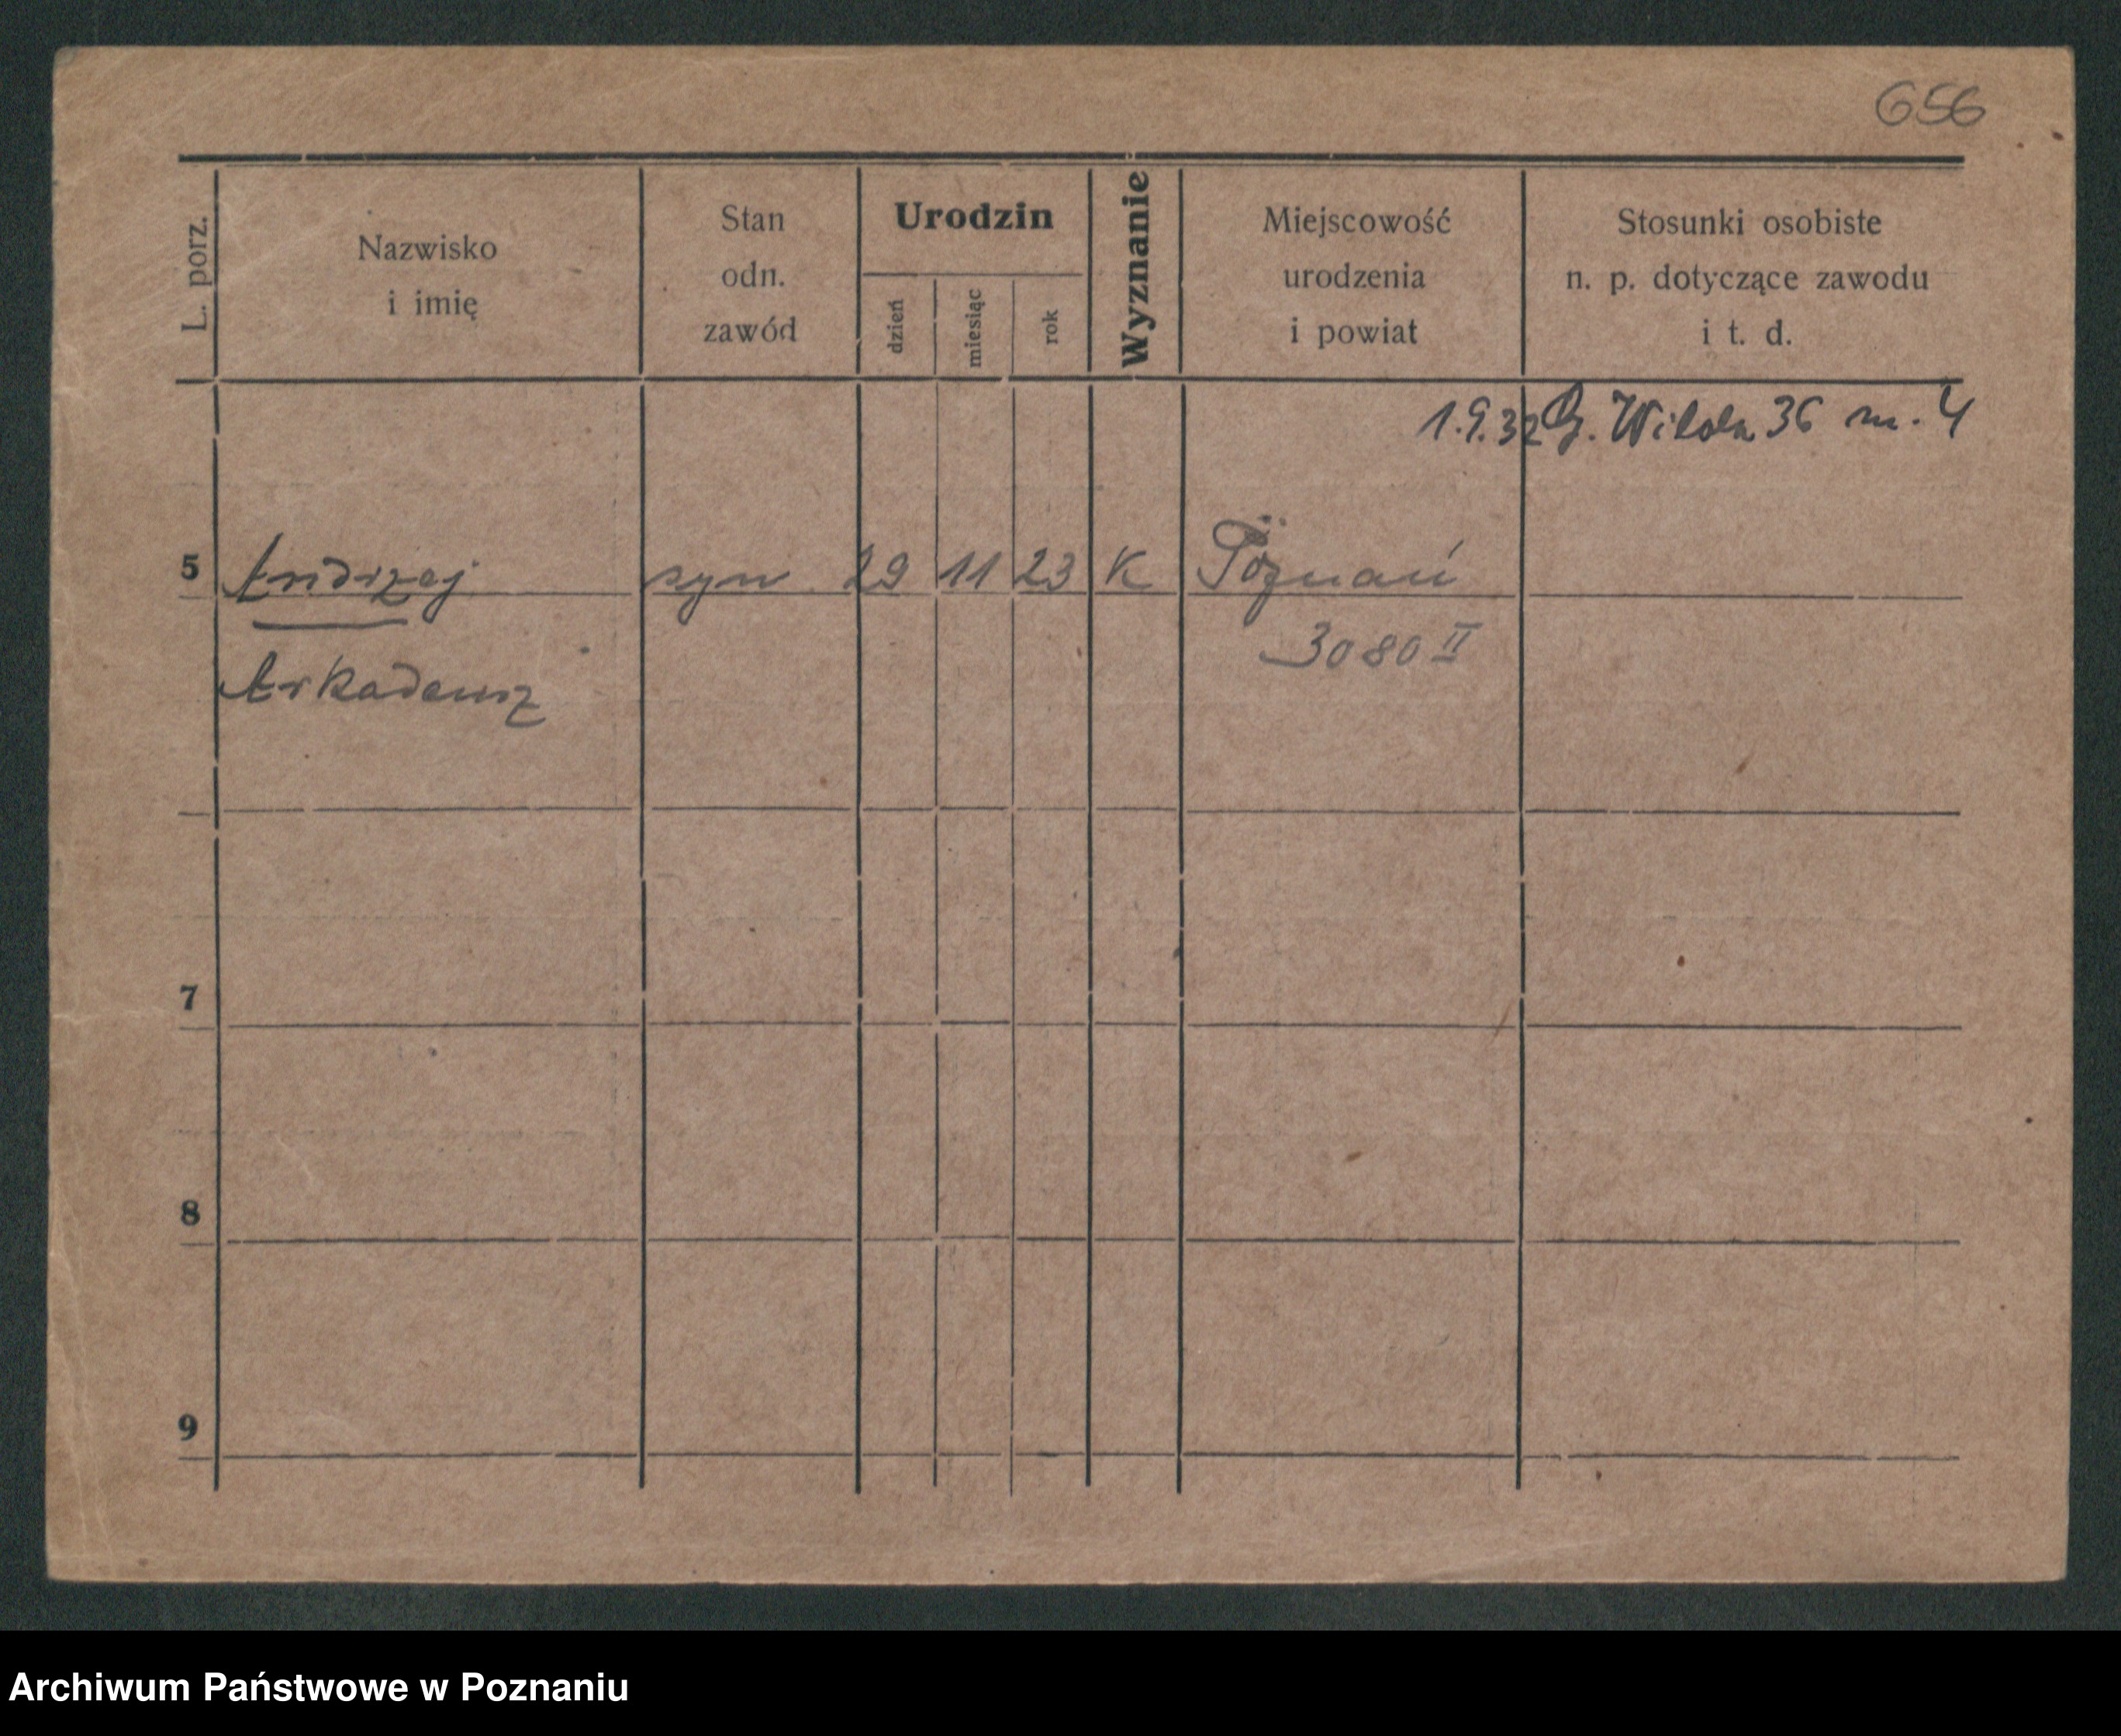 656
L. porz.
Nazwisko
i imię
Stan
odn.
zawód
Urodzin
dzień
miesiąc
rok
Wyznanie
Miejscowość
urodzenia
i powiat
Stosunki osobiste
n. p. dotyczące zawodu
i t. d.
1.9.32 G. Wilda 36 m. 4
5 Andrzej syn 29 11 23 K Poznań
3080 II
Arkadeusz
7
8
9
Archiwum Państwowe w Poznaniu